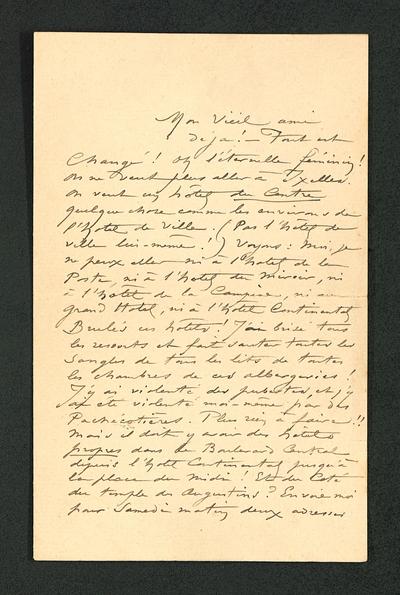 Mon Vieil ami
Déja! — Tout est
Changé! Oh l'éternelle féminin!
On ne veut plus aller à Ixelles.
On veut un hôtel du Centre
quelque chose comme les environs de
l'hotel de Ville. (Pas l'hôtel de
ville lui-meme!) Voyons: Moi, je
ne peux aller ni à l'hotel de la
Poste, ni à l'hotel du Miroir, ni
à l'hotel de la Campine, ni au
grand Hotel, ni à l'hotel Continental
Brulés ces hotels! J'ai brisé tous
les ressorts et fait sauter toutes les
Sangles de tous les lits de toutes
les chambres de ces albergueries!
J'y ai violenté des et j'y
ai été violenté moi-même par des
Plus rien à faire!!
Mais il doit y avoir des hotels
propres dans le Boulevard Central
depuis l'hotel Continental jusqu'à
la place du Midi! Et du Coté
du temple des Augustins? Envoie moi
pour Samedi matin deux adresses